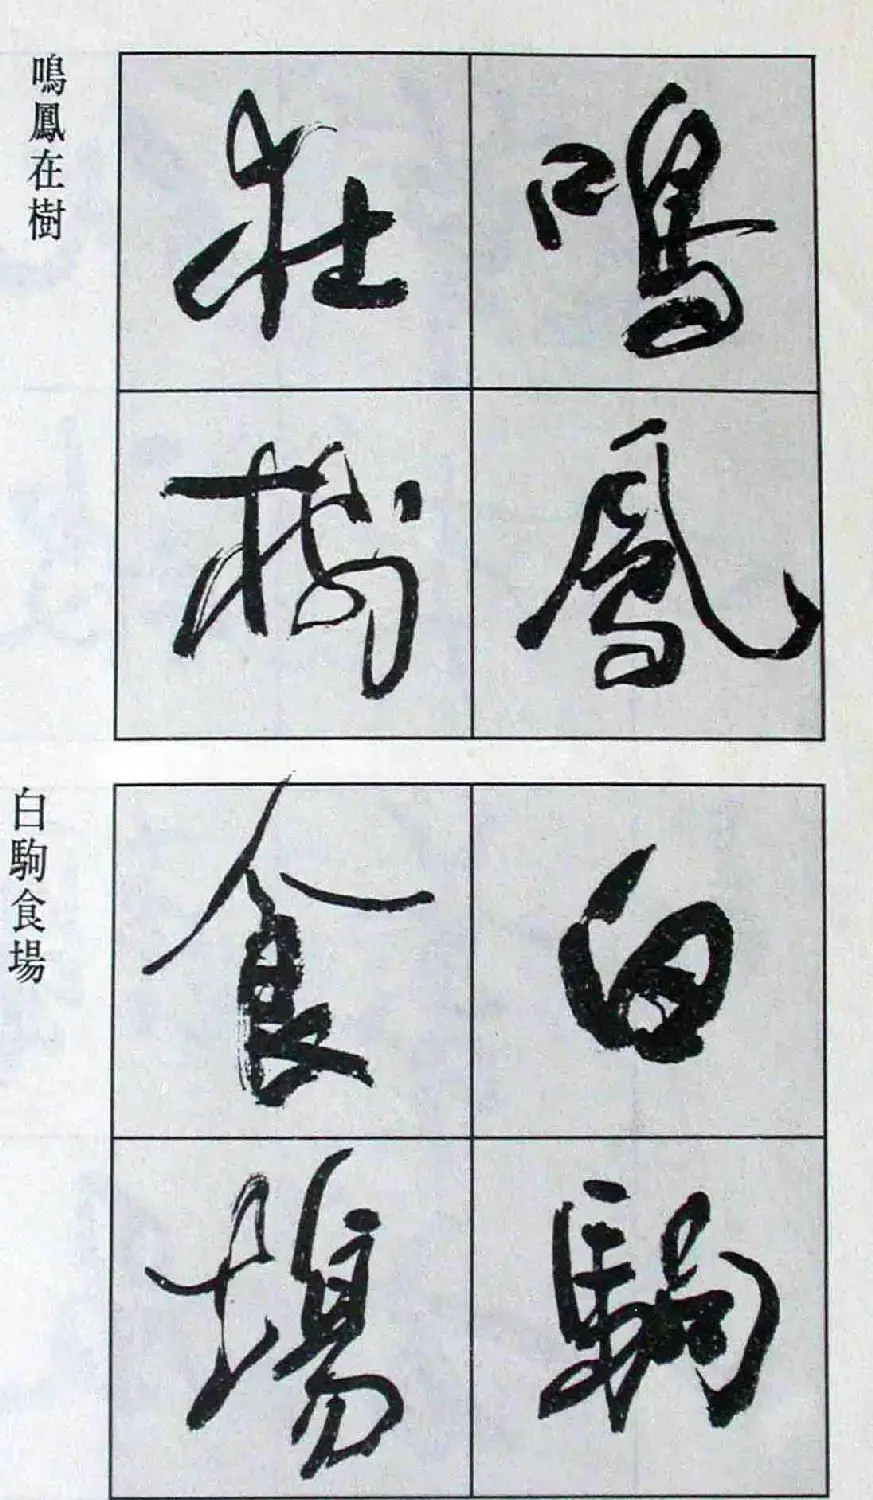 鳴鳳
在樹
鳴鳳在樹
白駒
食場
白駒食場